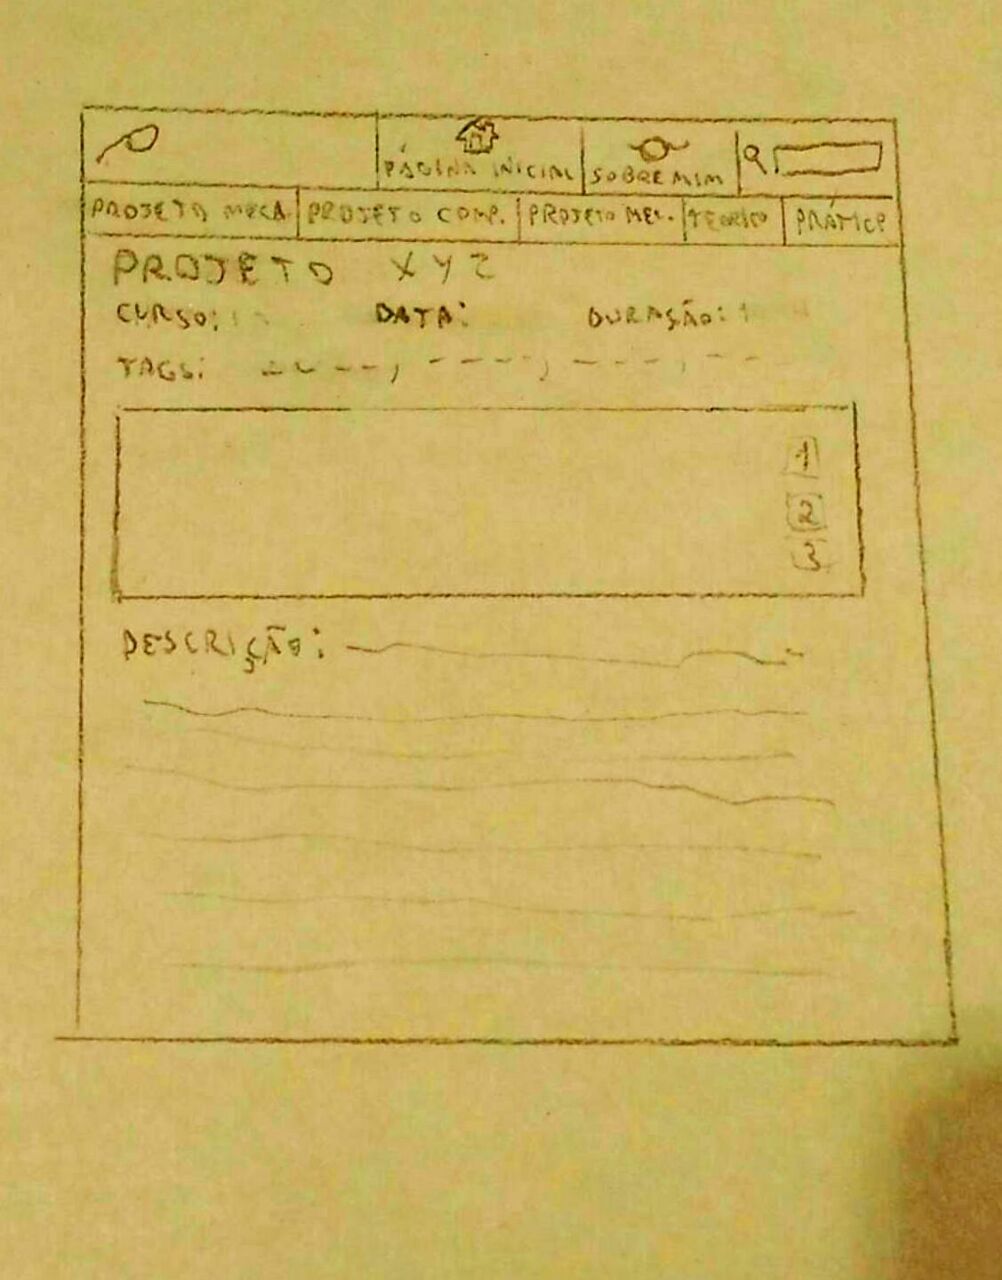 PÁGINA INICIAL SOBRE MIM
PROJETO MECA. PROJETO COMP. PROJETO MEC. TEÓRICO PRÁTICO
PROJETO XYZ
CURSO: DATA: DURAÇÃO:
TAGS:
1
2
3
DESCRIÇÃO: